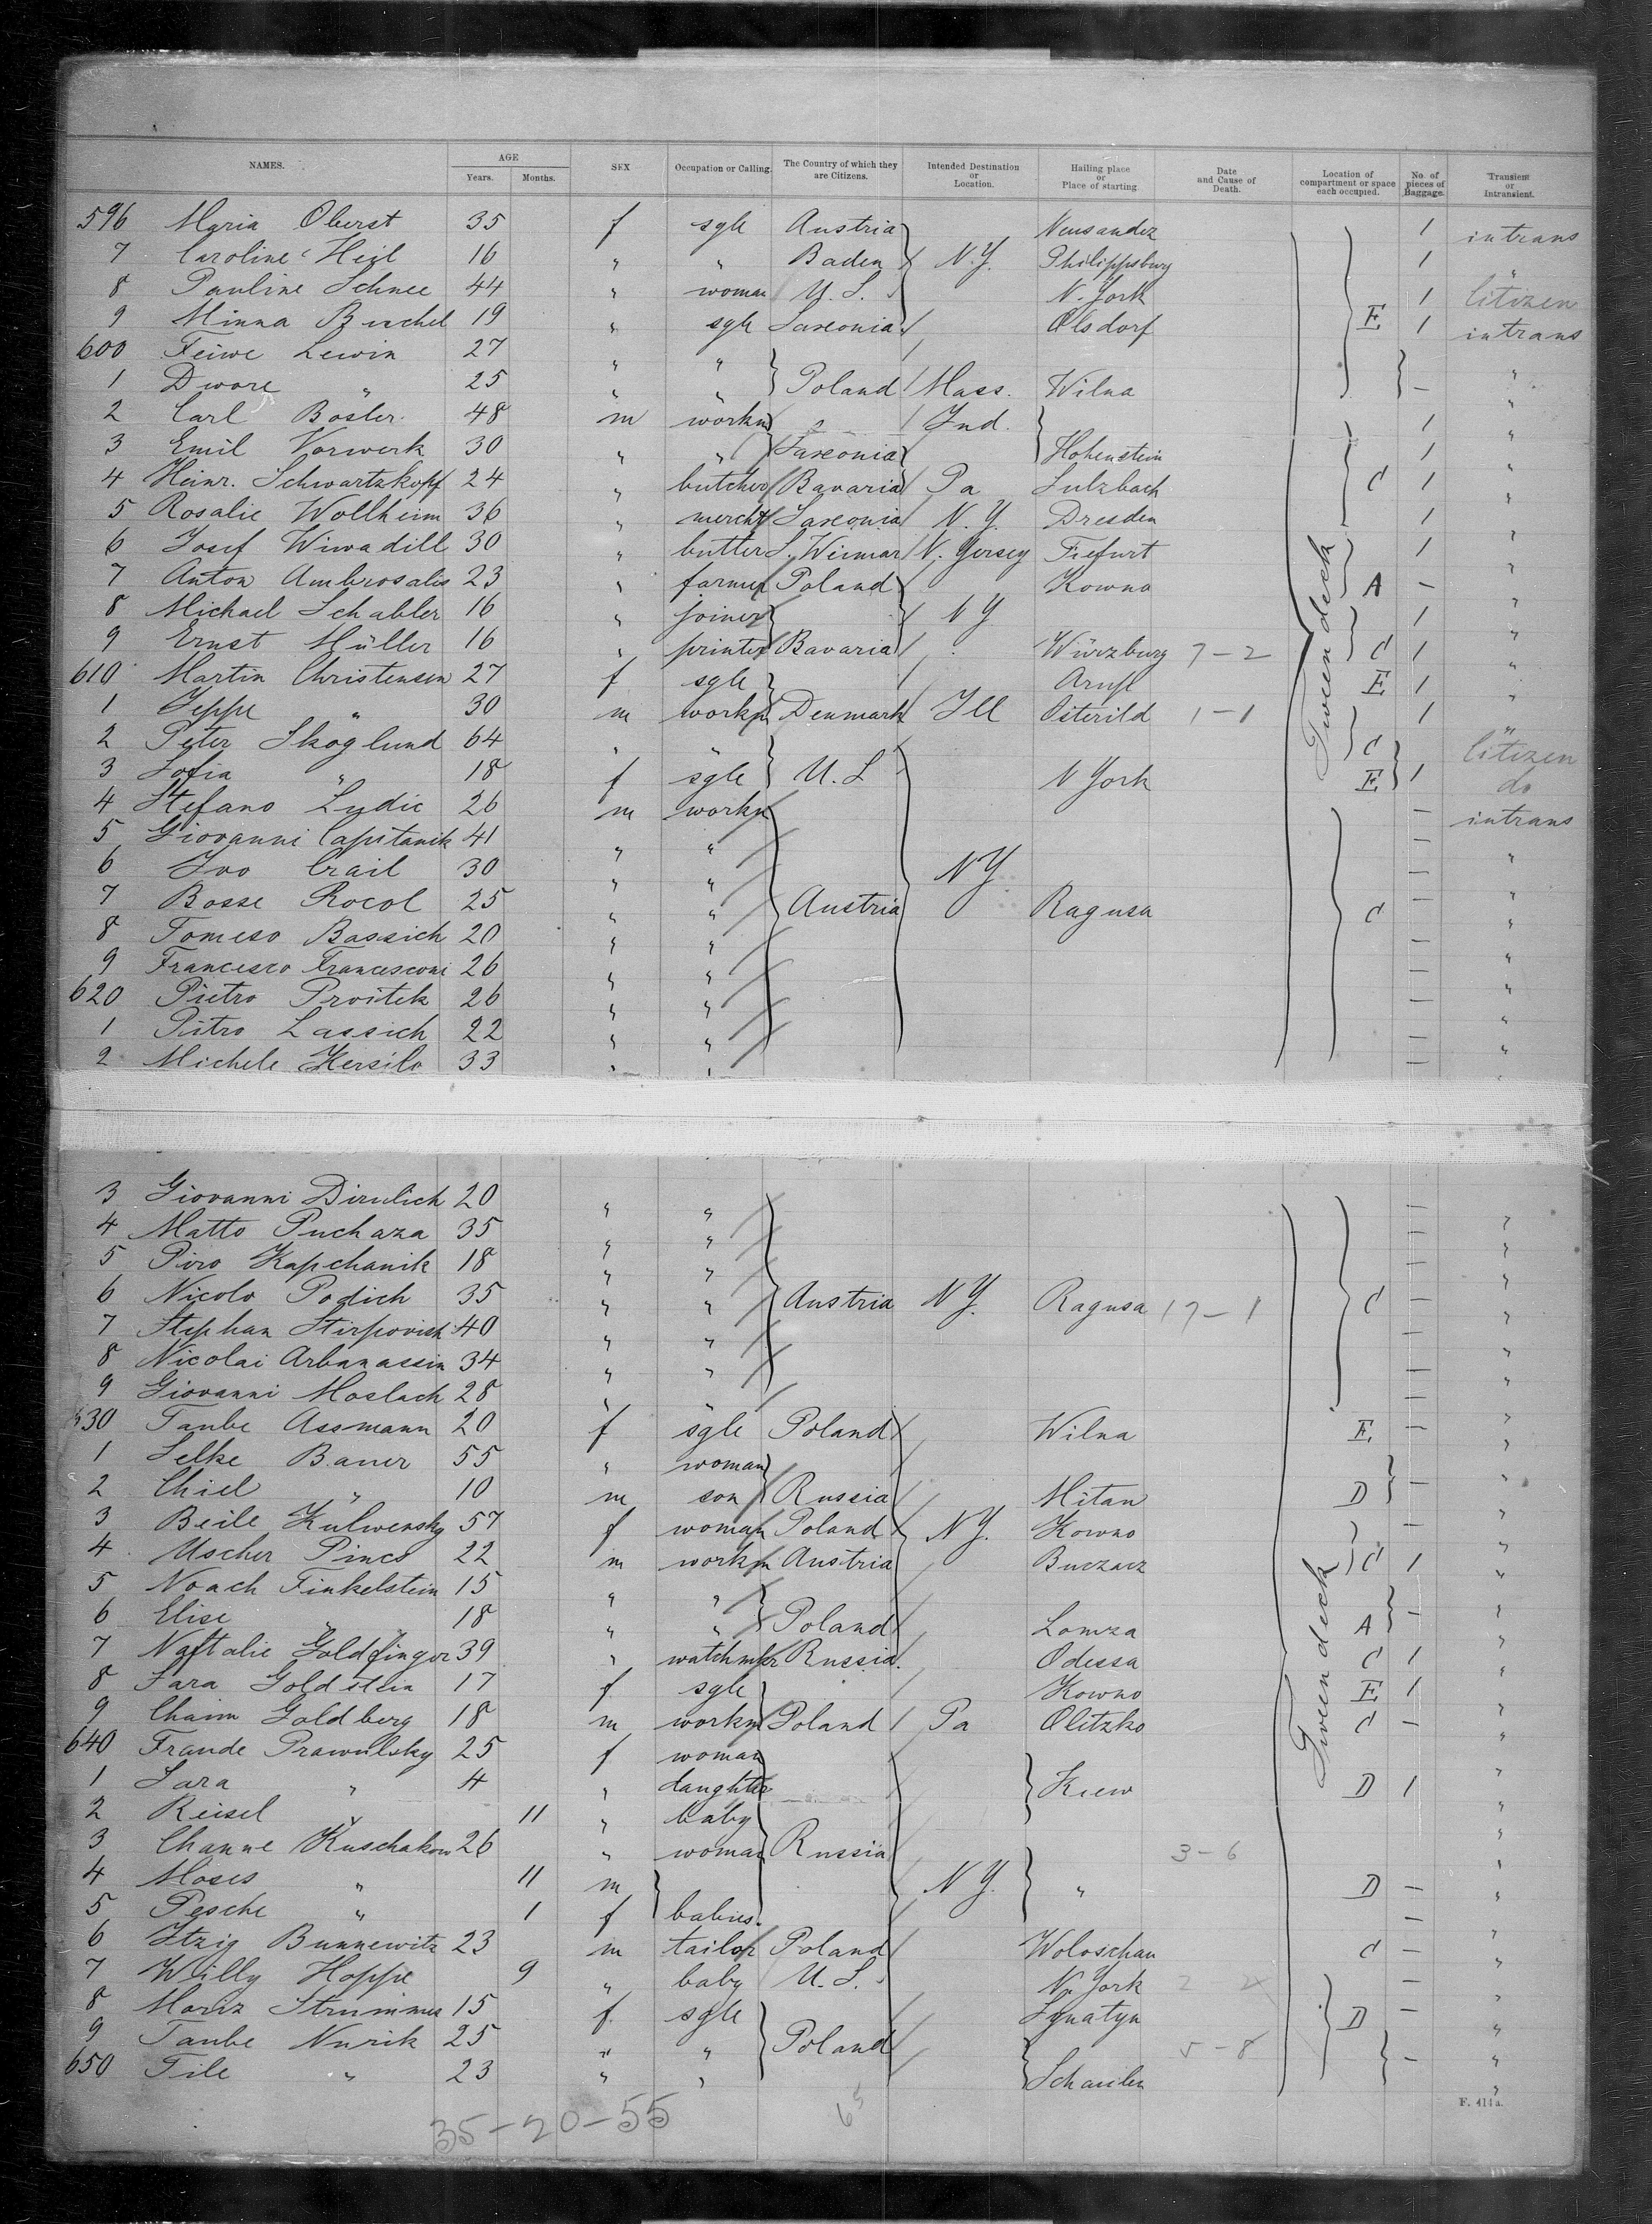 NAMES. AGE SEX Occupation or Calling. The Country of which they are Citizens. Intended Destination or Location. Hailing place or Place of starting. Date and Cause of Death. Location of compartment or space each occupied. No. of pieces of Baggage. Transient or Intransient.
Years. Months.
596 Maria Oberst 35 f sgle Austria Neusandez 1 intrans
7 Caroline Heil 16 " " Baden N.Y. Philippsburg 1 "
8 Pauline Schnee 44 " woman U. S. N. York 1 Citizen
9 Minna Buchel 19 " sgle Saxonia Olsdorf E 1 intrans
600 Feiwe Lewin 27 " " "
1 Dwore " 25 " " Poland Mass. Wilna – "
2 Carl Bosler 48 m workm Ind. 1 "
3 Emil Vorwerk 30 " " Saxonia Hohenstein 1 "
4 Heinr. Schwartzkopf 24 " butcher Bavaria Pa Sulzbach C 1 "
5 Rosalie Wollheim 36 " mercht Saxonia N. Y. Dresden 1 "
6 Josef Wiwadill 30 " butler S. Weimar N. Yersey Tiefurt 1 "
7 Anton Ambrosalis 23 " farmer Poland Kowno A – "
8 Michael Schabler 16 " joiner N Y 1 "
9 Ernst Müller 16 " printer Bavaria Würzburg 7–2 C 1 "
610 Martin Christensen 27 f sgle E 1 "
1 Jeppe " 30 m workm Denmark Ill Osterild 1–1 1 "
2 Peter Skoglund 64 " " C Citizen
3 Sofia " 18 f sgle U. S N York E 1 do
4 Stefano Lydic 26 m workm – intrans
5 Giovanni Capitanik 41 " " – "
6 Ivo Crail 30 " " N Y. – "
7 Bosse Rocol 25 " " Austria Ragusa C – "
8 Tomeso Bassich 20 " " – "
9 Francesco Francesconi 26 " " – "
620 Pietro Provitek 26 " " – "
1 Pitro Lassich 22 " " – "
2 Michele Kersilo 33 " " – "
3 Giovanni Dirulich 20 " " – "
4 Matto Puchaza 35 " " – "
5 Piro Kapchanik 18 " " – "
6 Nicolo Podich 35 " " Austria N Y. Ragusa 17–1 C – "
7 Stephan Stirpovich 40 " " – "
8 Nicolai Arbanassin 34 " " – "
9 Giovanni Moslach 28 " " – "
630 Taube Assmann 20 f sgle Poland Wilna E –  "
1 Selke Bauer 55 " woman "
2 Chiel " 10 m son Russia Mitau D – "
3 Beile Kulwensky 57 f woman Poland N Y. Kowno – "
4 Uscher Pinces 22 m workm Austria Buczacz C 1 "
5 Noach Finkelstein 15 " " "
6 Elise " 18 " " Poland Lomza A – "
7 Naftalie Goldfinger 39 " watchmkr Russia. Odessa C 1 "
8 Sara Goldstein 17 f sgle Kowno E 1 "
9 Chaim Goldberg 18 m workm Poland Pa Olitzko C – "
640 Fraude Prawulsky 25 f woman "
1 Sara " 4 " daughter Kiew D 1 "
2 Reisel " 11 " baby "
3 Channe Kuschakow 26 " woman Russia 3–6 "
4 Moses " 11 m N Y. " D – "
5 Pesche " 1 f babies. – "
6 Itzig Bunnewitz 23 m tailor Poland Woloschan C – "
7 Willy Hoppe 9 " baby U. S. N. York – "
8 Moriz Strummes 15 f sgle Ignatyn D – "
9 Taube Nurik 25 " " Poland 5–8 "
650 Tile " 23 " " Schaulen – "
Tween deck
Tween deck
35–20–55
F. 411a.